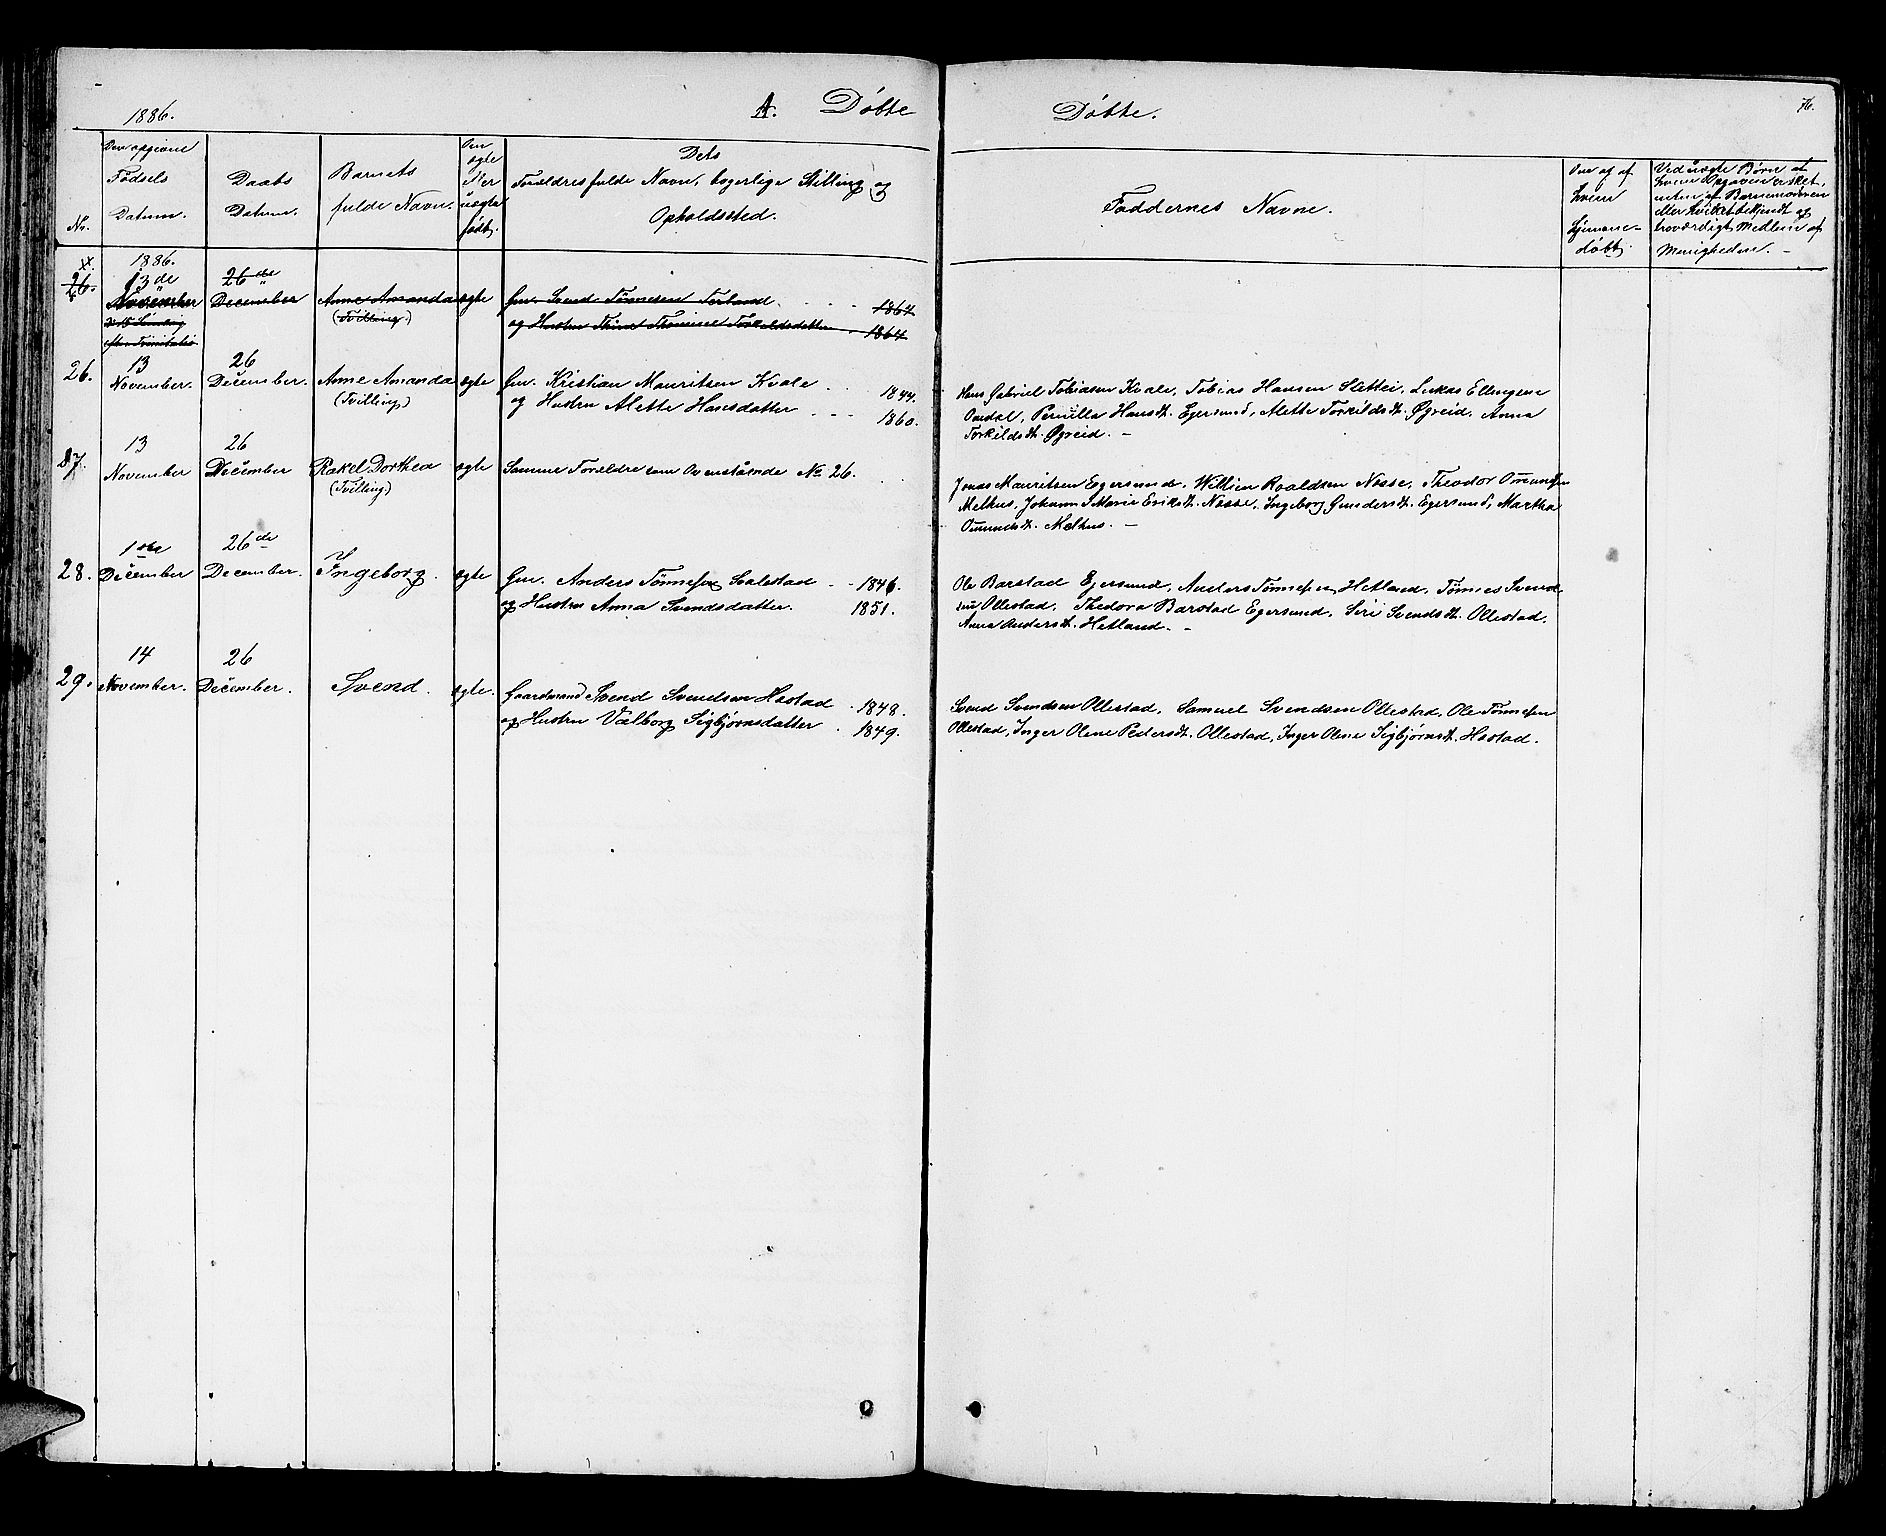 1886.
A. Döbte
Döbte.
76.
Nr.
Den opgivne
Fødsels
Datum.
Daabs
Datum.
Barnets
fulde Navn.
Om
ægte
eller
uægte
født.
Dets
Forældres fulde Navn, borgerlige Stilling og
Opholdssted.
Faddernes Navne.
Om og af
hvem
hjemme-
døbt.
Ved uægte Børn at
hvem Opgaven er sket,
enten af Barnemoderen
eller hvilket bekjendt og
troværdigt Medlem af
Menigheden. -
X.
1886.
26. 13de 26de
November December Anne Amanda ægte Gm. Svend Tønnesen 1864
efter Trinitatis (Tvilling) og Hustru 1864
26. 13 26
November. December. Anne Amanda ægte Gm. Kristian Mauritsen Kvale 1844.
(Tvilling) og Hustru Alette Hansdatter 1860.
Hans Gabriel Tobiasen Kvale, Tobias Hansen Slettei, Lukas Ellingsen
Omdal, Pernilla Hansdt. Egersund, Alette Torkildsdt. Øgreid, Anna
Torkildsdt. Øgreid. -
27. 13 26
November December Rakel Dorthea ægte Samme Forældre som Ovenstaaende No 26.
(Tvilling)
Jonas Mauritsen Egersund, Willien Roaldsen Nosse, Theodor Omundsen
Melhus, Johanna Marie Eriksdt. Nosse, Ingeborg Gundersdt. Egersund, Martha
Omundsdt. Melhus. -
28. 1ste 26de
December December. Ingeborg. ægte Gm. Anders Tønnesen Salestad 1846.
og Hustru Anna Svendsdatter. 1851.
Ole Barstad Egersund, Anders Tønnesen Hetland, Tønnes Svend-
sen Ollestad, Thedora Barstad Egersund, Siri Svendsdt. Ollestad,
Anna Andersdt. Hetland. -
29. 14 26
November. December. Svend. ægte. Gaardmand Svend Svendsen Hastad 1848.
og Hustru Valborg Sigbjørnsdatter 1849.
Svend Svendsen Ollestad, Samuel Svendsen Ollestad, Ole Tønnesen
Ollestad, Inger Olene Pedersdt. Ollestad, Inger Olene Sigbjørnsdt. Hastad.